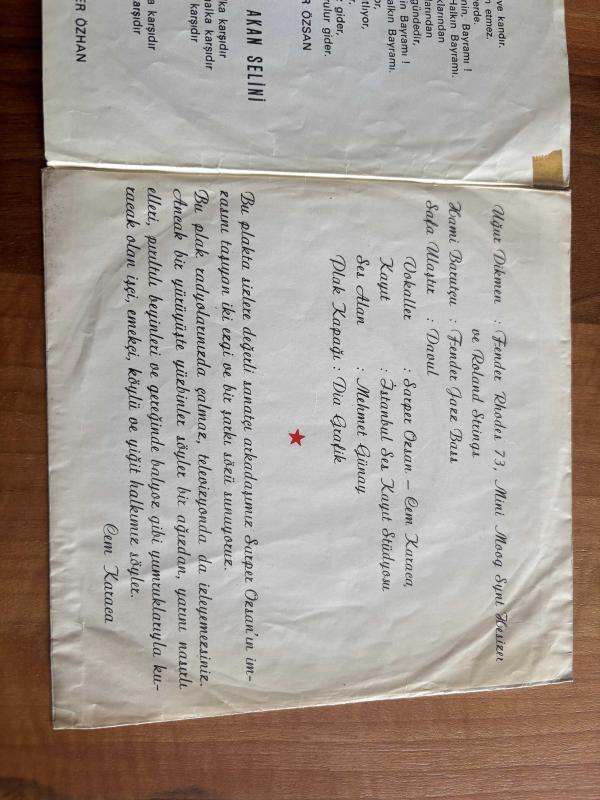 ve kandır.
etmez.
Bayramı !
Halkın Bayramı.
Bayramı !
Bayramı.
gider,
gider.
ER ÖZSAN
AKAN SELİNİ
karşıdır
halka karşıdır
karşıdır
karşıdır
karşıdır
ER ÖZHAN
Uğur Dikmen : Fender Rhodes 73, Mini Moog Synt Hesizer
ve Roland Strings
Hami Barutçu : Fender Jazz Bass
Sefa Ulaştır : Davul
Vokaller : Sarper Özsan – Cem Karaca
Kayıt : İstanbul Ses Kayıt Stüdyosu
Ses Alan : Mehmet Günay
Plak Kapağı : Dia Grafik
Bu plakta sizlere değerli sanatçı arkadaşımız Sarper Özsan'ın im-
zasını taşıyan iki ezgi ve bir şarkı sözü sunuyoruz.
Bu plak radyolarınızda çalmaz, televizyonda da izleyemezsiniz.
Ancak bir yürüyüşte yüzbinler söyler bir ağızdan, yarını nasırlı
elleri, pırıltılı beyinleri ve gereğinde balyoz gibi yumruklarıyla ku-
racak olan işçi, emekçi, köylü ve yiğit halkımız söyler.
Cem Karaca